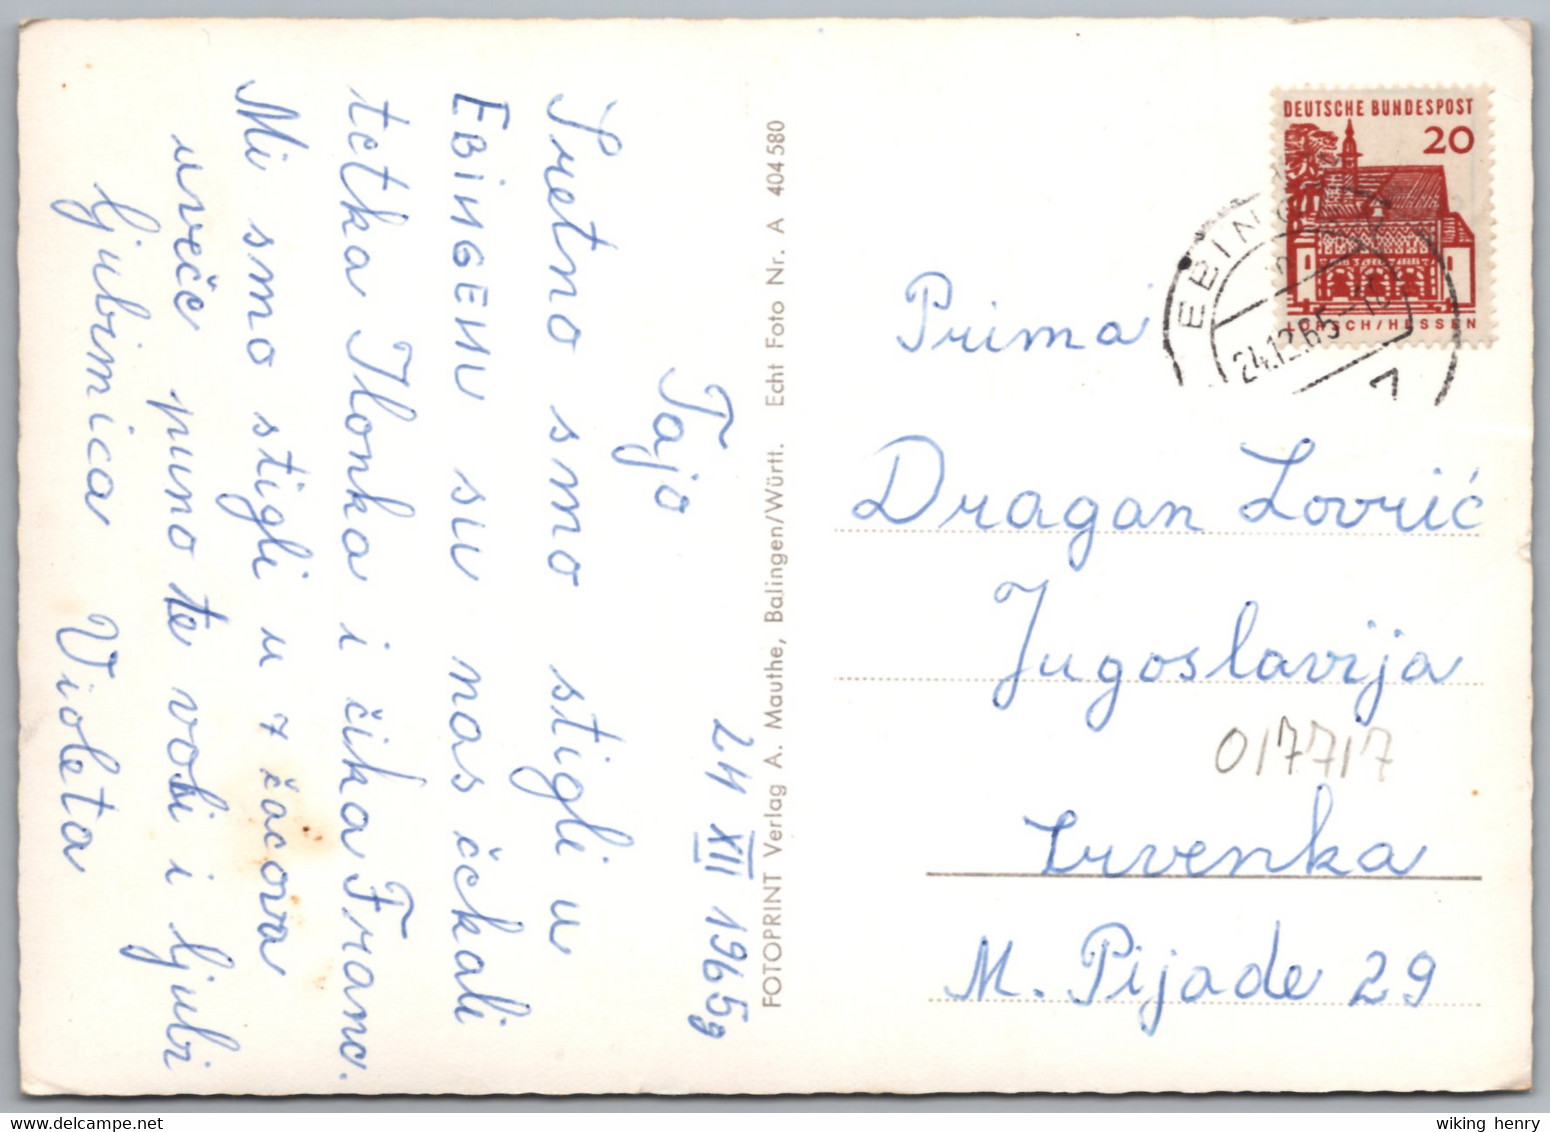 24 XII 1965g
Tajo
Sretno smo stigli u
EBINGENU su nas čekali
tetka Ilonka i čika Franc.
Mi smo stigli u 7 čacova
uveče puno te voli i ljubi
ljubimica Violeta
FOTOPRINT Verlag A. Mauthe, Balingen/Württ. Echt Foto Nr. A 404580
DEUTSCHE BUNDESPOST
20
LORSCH/HESSEN
EBINGEN
24.12.65
1
Prima
Dragan Lovrić
Jugoslavija
017717
Crvenka
M. Pijade 29
wiking henry